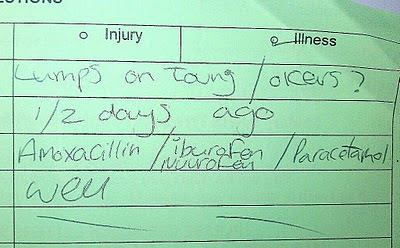 CTIONS
Injury Illness
Lumps on Toung / olcers?
1/2 days ago
Amoxacillin / iburofen / Paracetamol
nuurofen
well